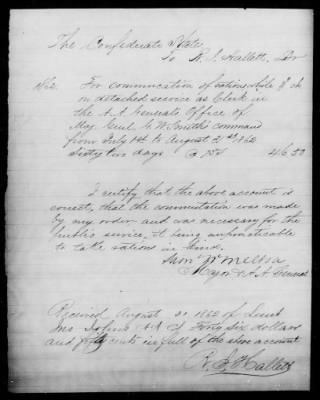 The Confederate States
To R. J. Hallett, Dr
For commutation of rations while
on detached service as Clerk in
the A A Generals Office of
Maj Genl G. W. Smiths command
from July 1st to August 31st 1862
Sixty two days @ 75¢ 46.50
I certify that the above account is
correct, that the commutation was made
by my order and was necessary for the
public service, it being impracticable
to take rations in kind.
Major & A. A. General
Received August 31 1862 of Lieut
Forty six dollars
and fifty cents in full of the above account
R. J. Hallett